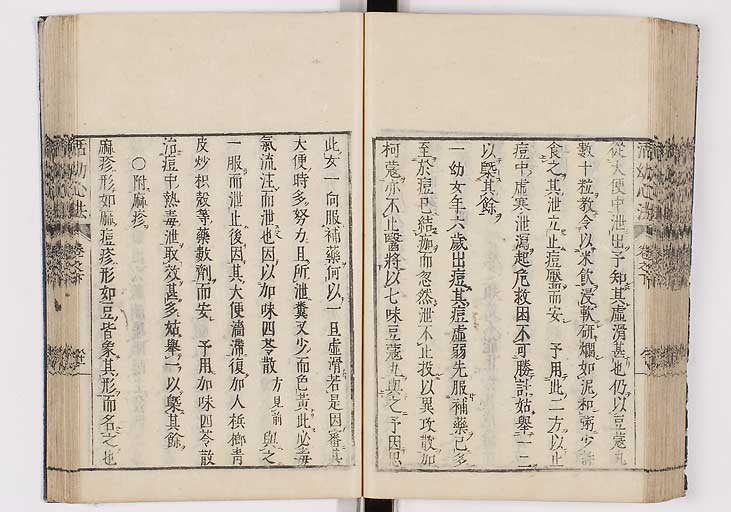 活幼心法
從大便中泄出予知其虛滑甚也仍以豆蔻丸
數十粒教令以米飲浸軟研爛如泥和粥少許
食之其泄立止痘靨而安 予用此二方以止
痘中虛寒泄瀉起危救困不可勝計姑舉一二
以槩其餘
一幼女年六歲出痘其痘虛弱先服補藥已多
至於痘已結痂而忽然泄不止投以異攻散加
柯蔻亦不止醫將以七味豆蔻丸與之予因思
此女一向服補藥何以一旦虛滑若是因審其
大便時多努力且所泄糞又少而色黃此必毒
氣流注而泄也因以加味四苓散方見前與之
一服而泄止後因其大便濇滯復加人桹榔青
皮炒枳殼等藥數劑而安 予用加味四苓散
治痘中熱毒泄取效甚多姑舉一以槩其餘
〇附麻疹
麻疹形如麻痘疹形如豆皆象其形而名之也
活幼心法